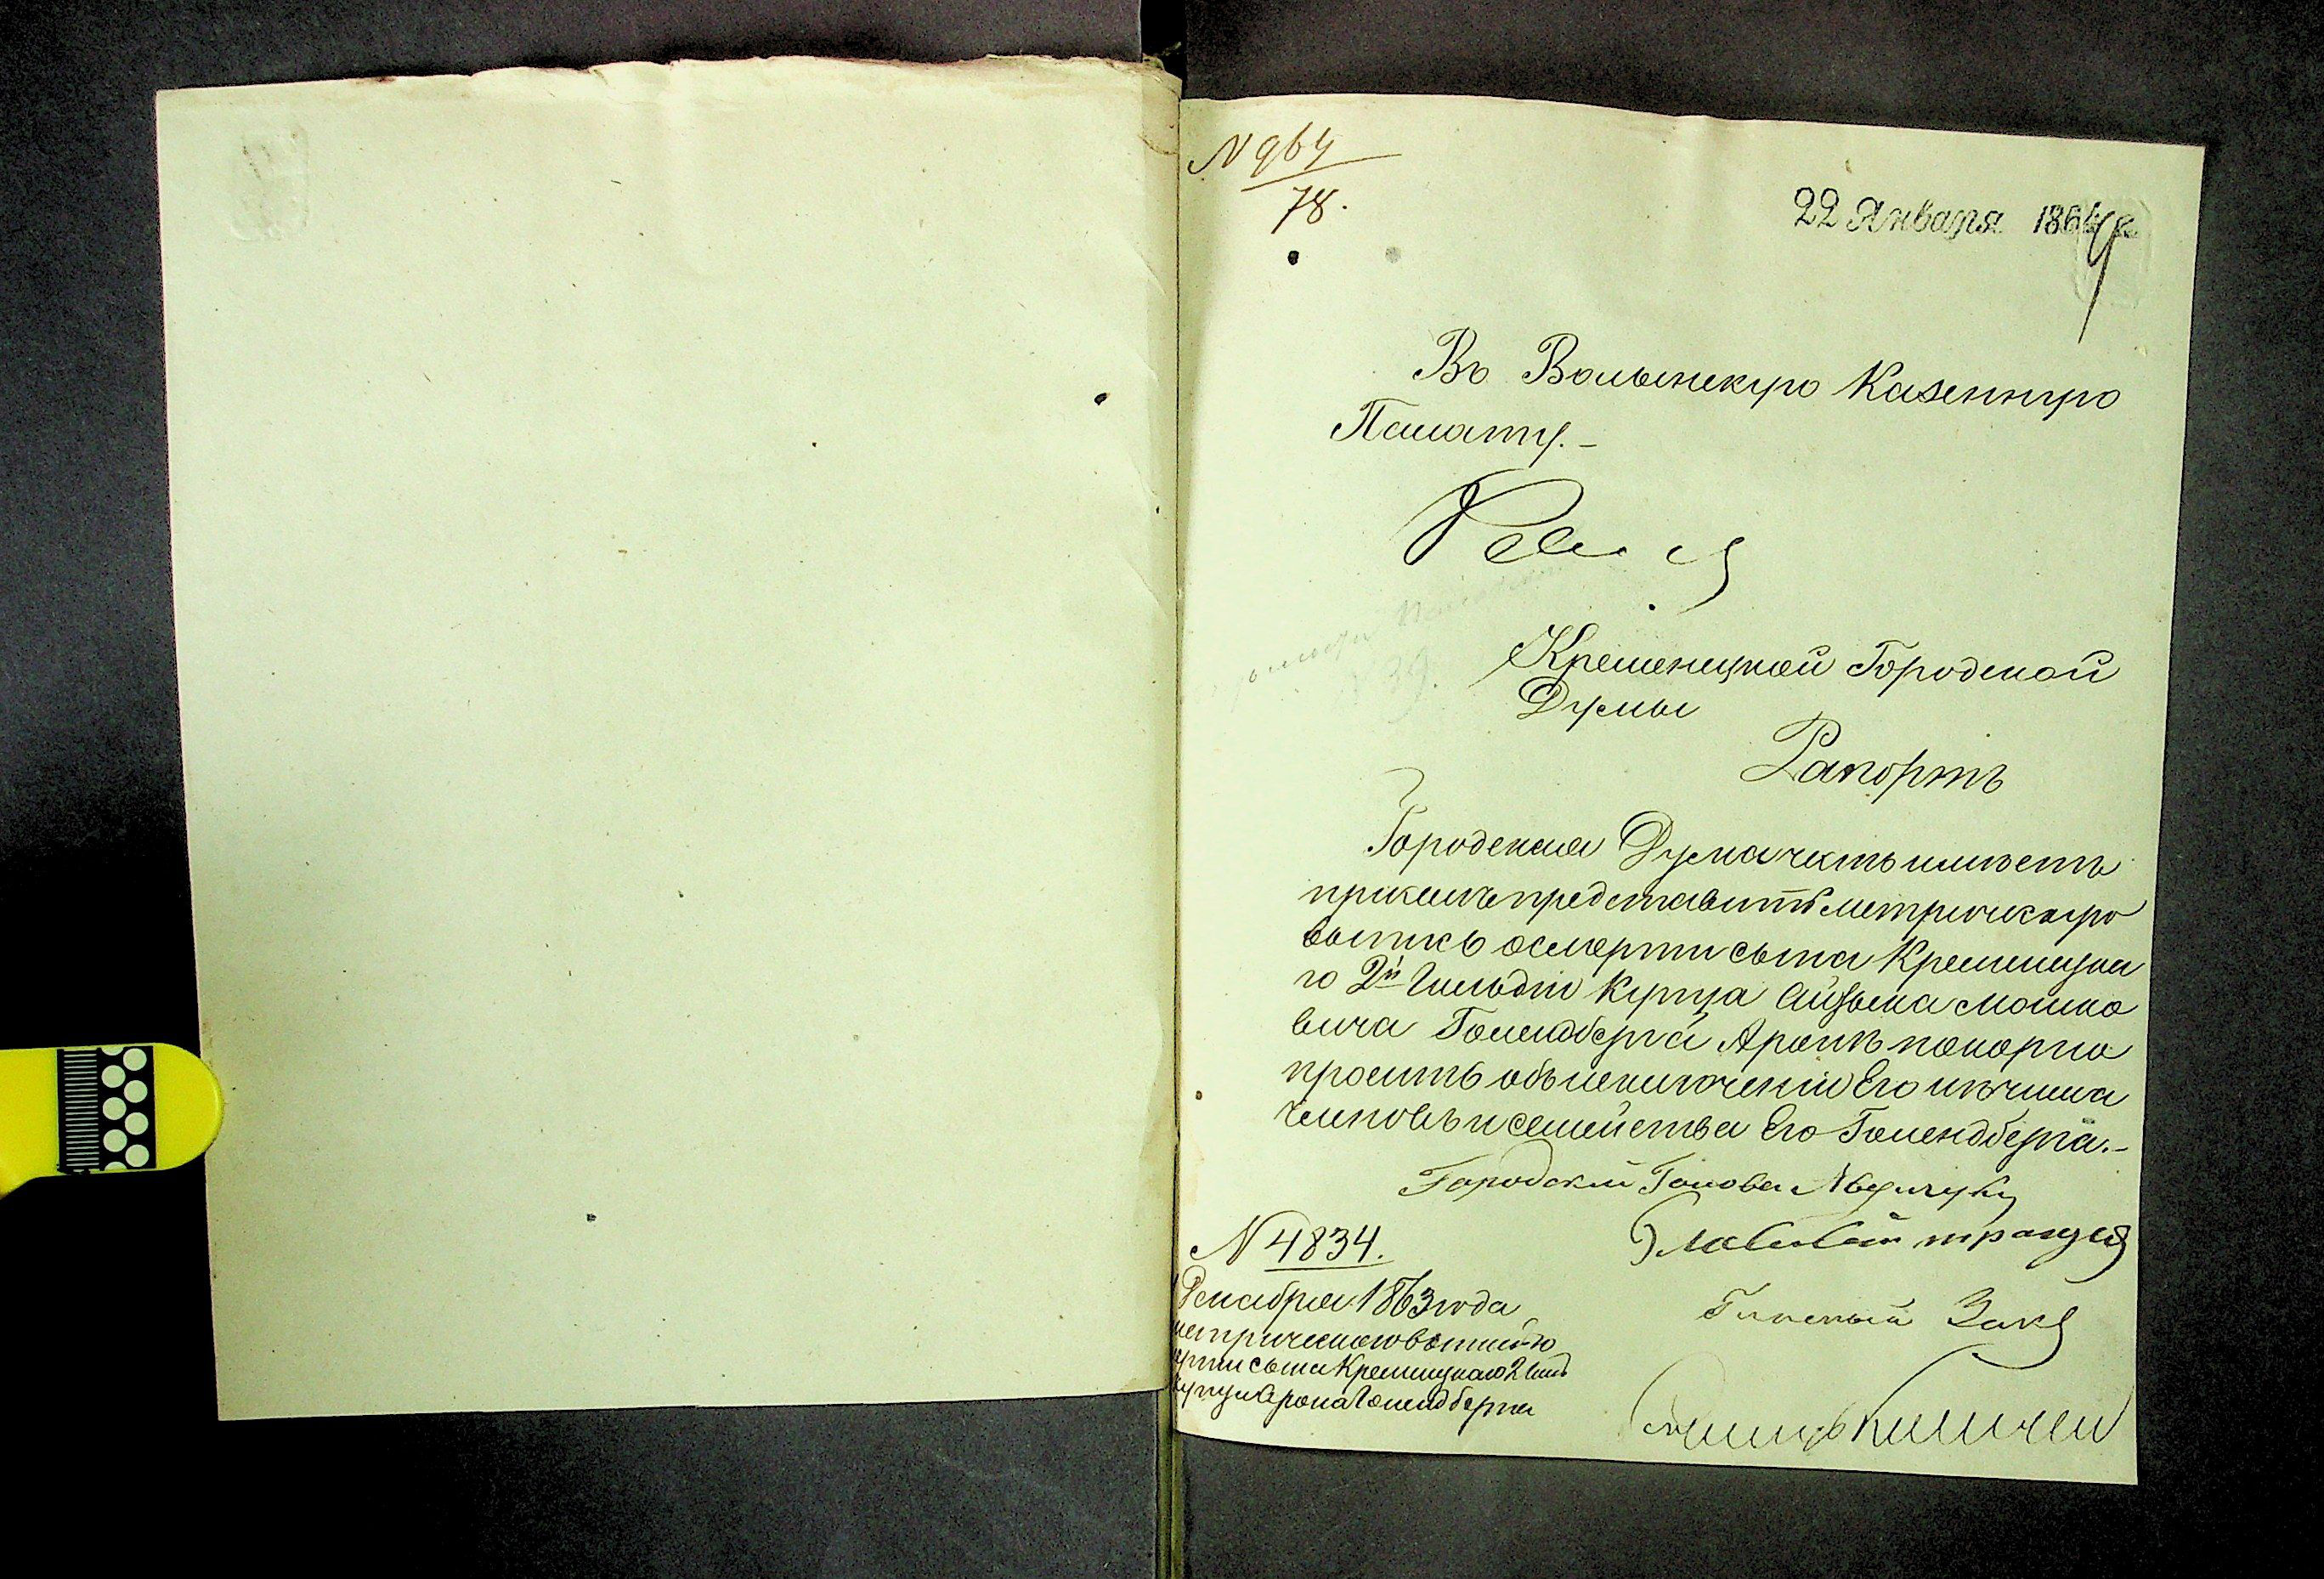 N 964
78.
22 Января 1864 г.
9
Въ Волынскую Казенную
Палату.-
Кременецкой Городской
Думы
Рапортъ
Городская Дума честь имѣетъ
при семъ представить метрическую
выпись о смерти сына Кременецка
го 2й Гильдіи Купца Айзыка Мошко
вича Голендберга Арона покорно
просить объ исключеніи Его изъ числа
членовъ и семейства Его Голендберга.-
Городской Голова
N 4834.
Декабря 1863 года
метрическою выписью
сына Кременецкаго 2 гил
купца Арона Голендберга
Гласный Закс